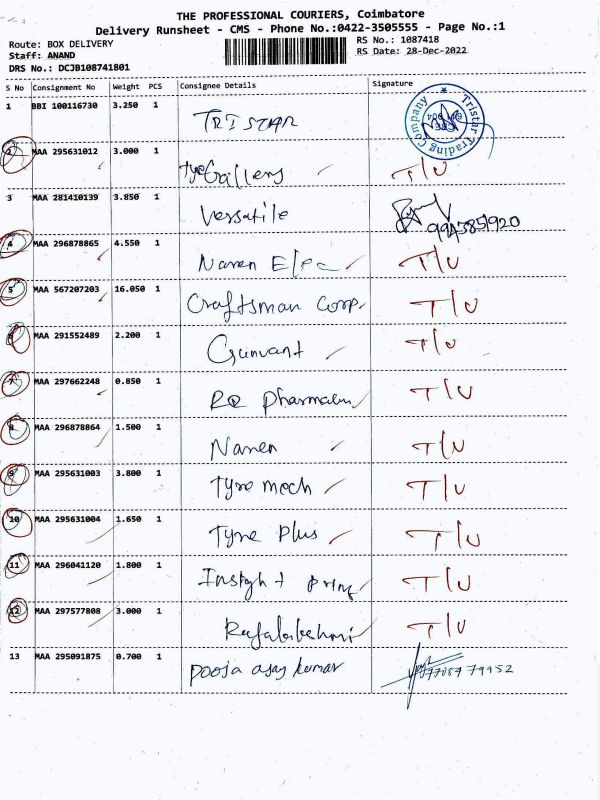 THE PROFESSIONAL COURIERS, Coimbatore
Delivery Runsheet - CMS - Phone No.:0422-3505555 - Page No.:1
Route: BOX DELIVERY
RS No.: 1087418
Staff: ANAND
RS Date: 28-Dec-2022
DRS No.: DCJB108741801
S No Consignment No Weight PCS Consignee Details Signature
1 BBI 100116730 3.250 1 TRISTAR Tristar Trading Company
2 MAA 295631012 3.000 1 Tyre Gallery T/U
3 MAA 281410139 3.850 1 Versatile
4 MAA 296878865 4.550 1 Naren Elec T/U
5 MAA 567207203 16.050 1 Craftsman Corp. T/U
6 MAA 291552489 2.200 1 Gunvant T/U
7 MAA 297662248 0.850 1 T/U
8 MAA 296878864 1.500 1 Naren T/U
9 MAA 295631003 3.800 1 Tyre mech T/U
10 MAA 295631004 1.650 1 Tyre Plus T/U
11 MAA 296041120 1.800 1 Insight Print T/U
12 MAA 297577808 3.000 1 T/U
13 MAA 295091875 0.700 1 Pooja ajay kumar 77087 79952